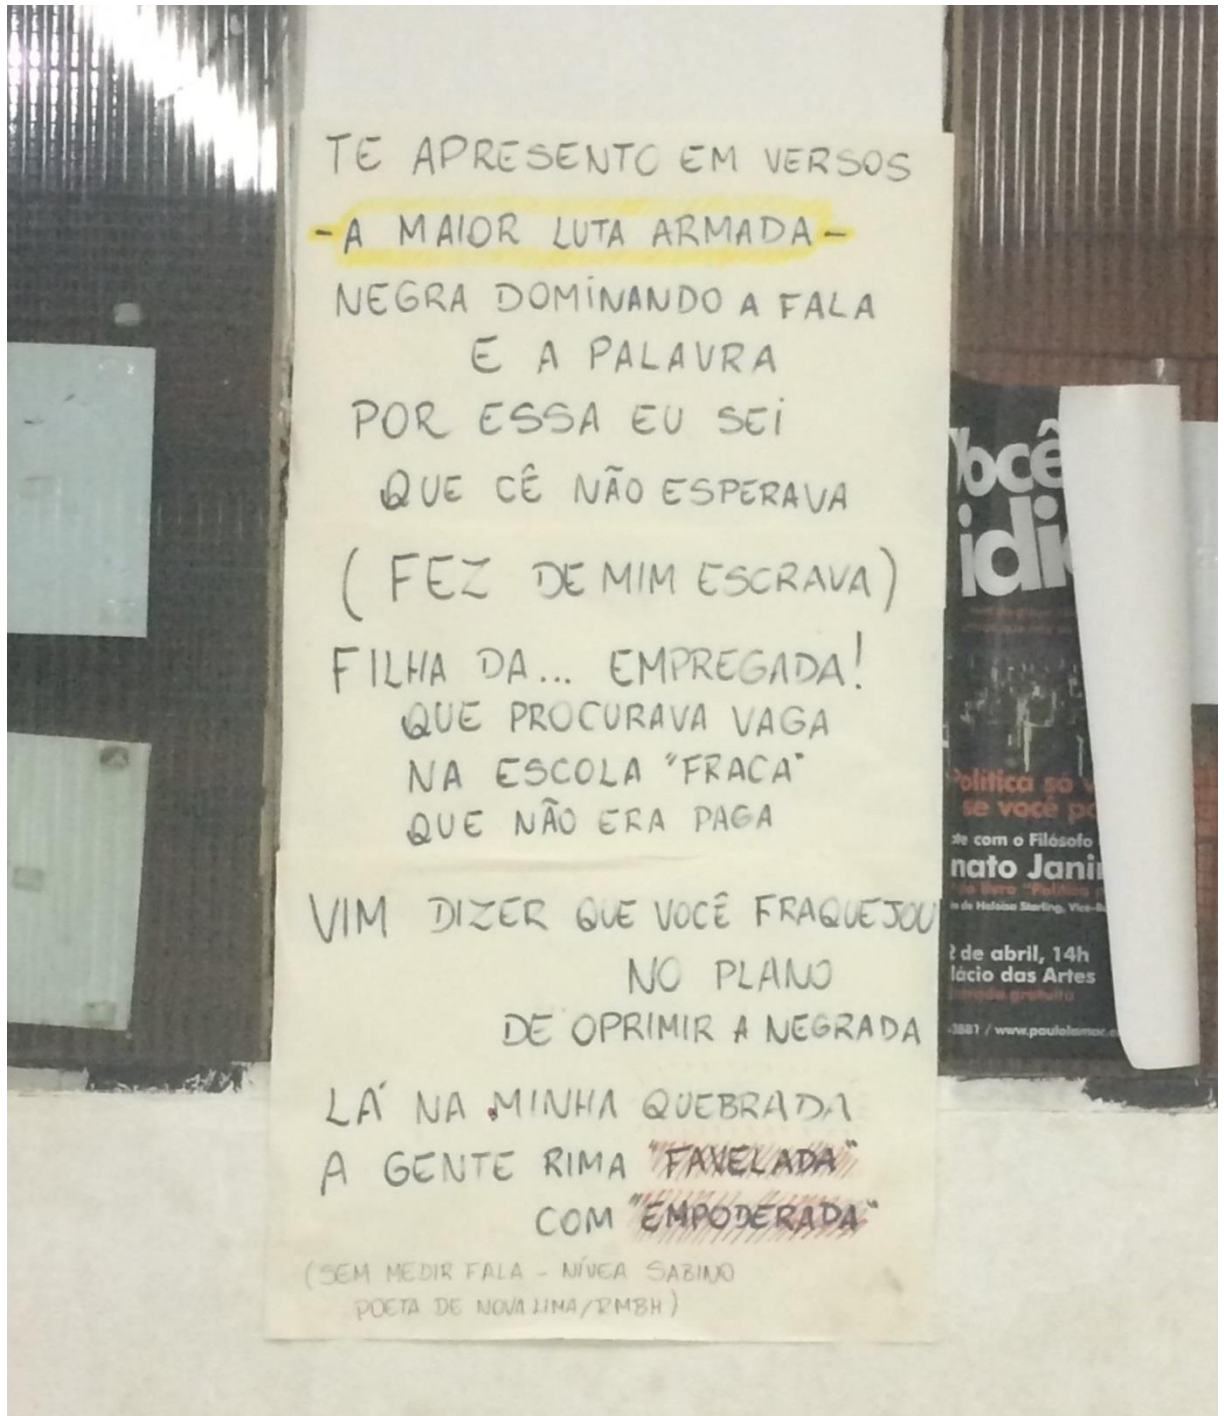 TE APRESENTO EM VERSOS
- A MAIOR LUTA ARMADA -
NEGRA DOMINANDO A FALA
E A PALAVRA
POR ESSA EU SEI
QUE CÊ NÃO ESPERAVA
( FEZ DE MIM ESCRAVA )
FILHA DA... EMPREGADA!
QUE PROCURAVA VAGA
NA ESCOLA "FRACA"
QUE NÃO ERA PAGA
VIM DIZER QUE VOCÊ FRAQUEJOU
NO PLANO
DE OPRIMIR A NEGRADA
LÁ NA MINHA QUEBRADA
A GENTE RIMA "FAVELADA"
COM "EMPODERADA"
(SEM MEDIR FALA - NÍVEA SABINO
POETA DE NOVA LIMA/RMBH)
ocê
idi
olítica só v
se você po
te com o Filósofo
nato Janin
do livro "Política
o de Heloisa Starling, Vice-R
2 de abril, 14h
lácio das Artes
trada gratuita
-3881 / www.paulolamac.c